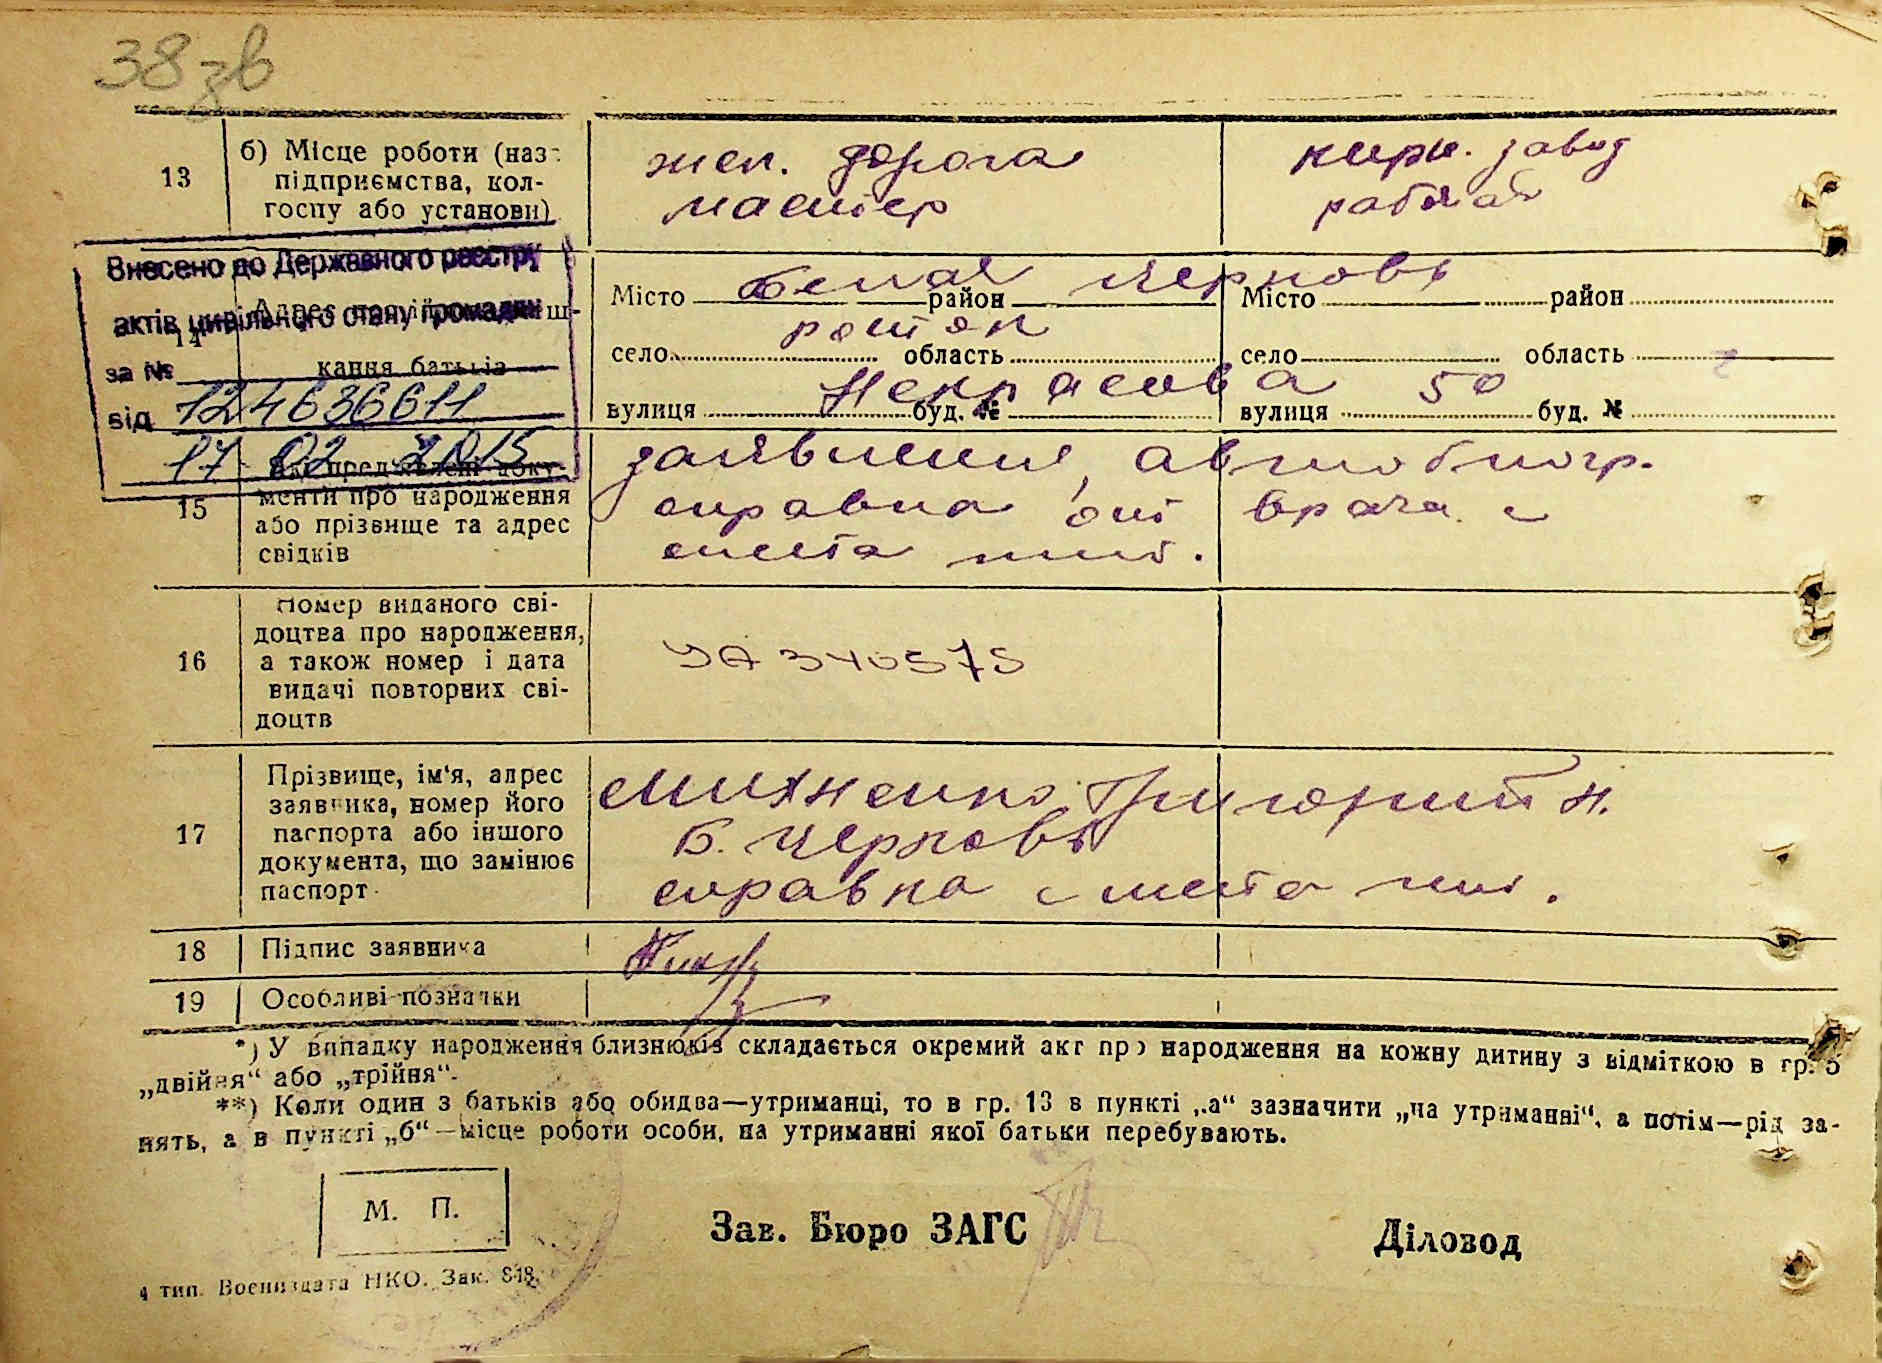 38 зв
13
б) Місце роботи (наз.
підприємства, кол-
госпу або установи)
жел. дорога
мастер
кирп. завод
рабочая
Внесено до Державного реєстру
актів цивільного стану громадян
за №
від 124636611
17 02 2015
14
кання батьків
Місто Белая Церковь район
Місто район
село область
село область
вулиця Некрасова 50 буд. №
вулиця буд. №
15
які пред'явлені доку-
менти про народження
або прізвище та адрес
свідків
заявление, автобиогр.
справка от врача с
места жит.
16
Номер виданого сві-
доцтва про народження,
а також номер і дата
видачі повторних сві-
доцтв
УА 340575
17
Прізвище, ім'я, адрес
заявника, номер його
паспорта або іншого
документа, що замінює
паспорт
Михненко Григорий Н.
Б. Церковь
справка с места жит.
18
Підпис заявника
19
Особливі позначки
*) У випадку народження близнюків складається окремий акт про народження на кожну дитину з відміткою в гр. 5
„двійня“ або „трійня“.
**) Коли один з батьків або обидва—утриманці, то в гр. 13 в пункті „а“ зазначити „на утриманні“, а потім—рід за-
нять, а в пункті „б“—місце роботи особи, на утриманні якої батьки перебувають.
М. П.
Зав. Бюро ЗАГС
Діловод
4 тип. Воениздата НКО. Зак. 848.